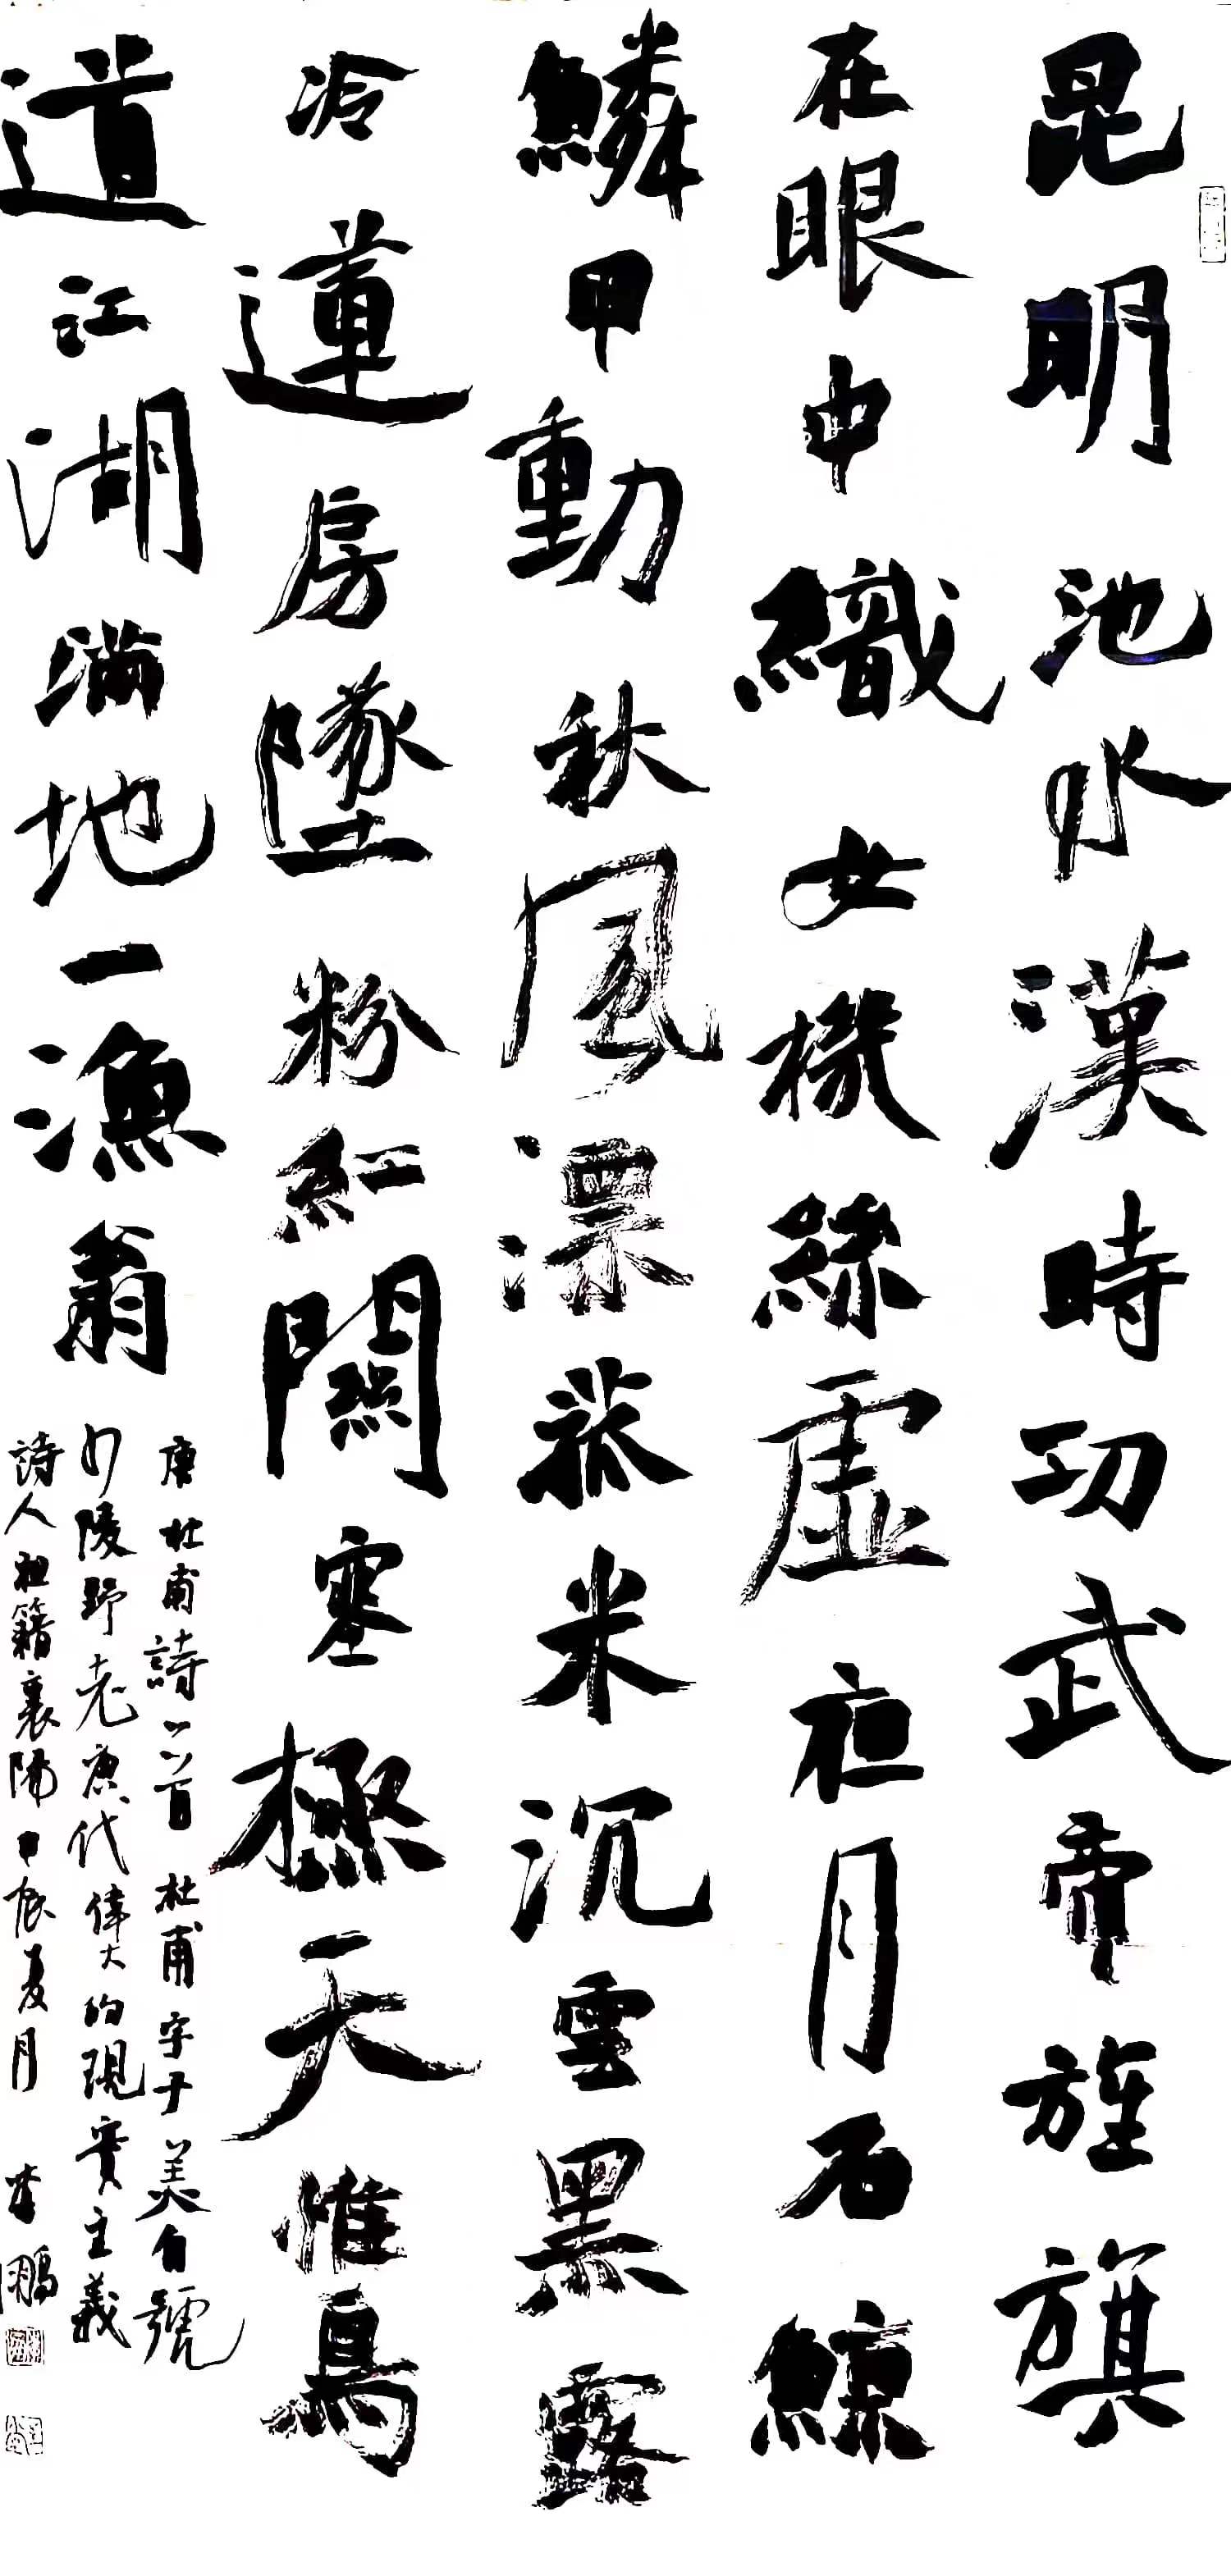 昆明池水漢時功武帝旌旗
在眼中織女機絲虛夜月石鯨
鱗甲動秋風漂菰米沉雲黑露
冷蓮房墜粉紅關塞極天惟鳥
道江湖滿地一漁翁
唐杜甫詩一首 杜甫字子美自號
少陵野老唐代偉大的現實主義
詩人祖籍襄陽 甲辰夏月 鵬